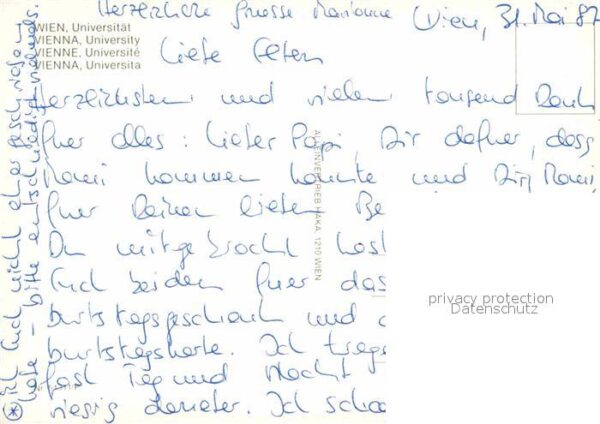 Herzlichste Gruesse Marianne
Wien, 31. Mai 87
WIEN, Universität
VIENNA, University
VIENNE, Université
VIENNA, Universita
Liebe Eltern
Herzlichsten und vielen tausend Dank
fuer alles: lieber Papi, Dir dafuer, dass
Mami kommen konnte und Dir, Mami,
fuer Deinen lieben Be
Du mitgebracht hast
Euch beiden fuer das
burtstagsgeschenk und
burtstagskarte. Ich trage
fast Tag und Nacht
riesig darueber. Ich
ALLEINVERTRIEB HAKA, 1210 WIEN
ich Euch nicht eher geschrieben
habe - bitte entschuldigt vielmals.
privacy protection
Datenschutz